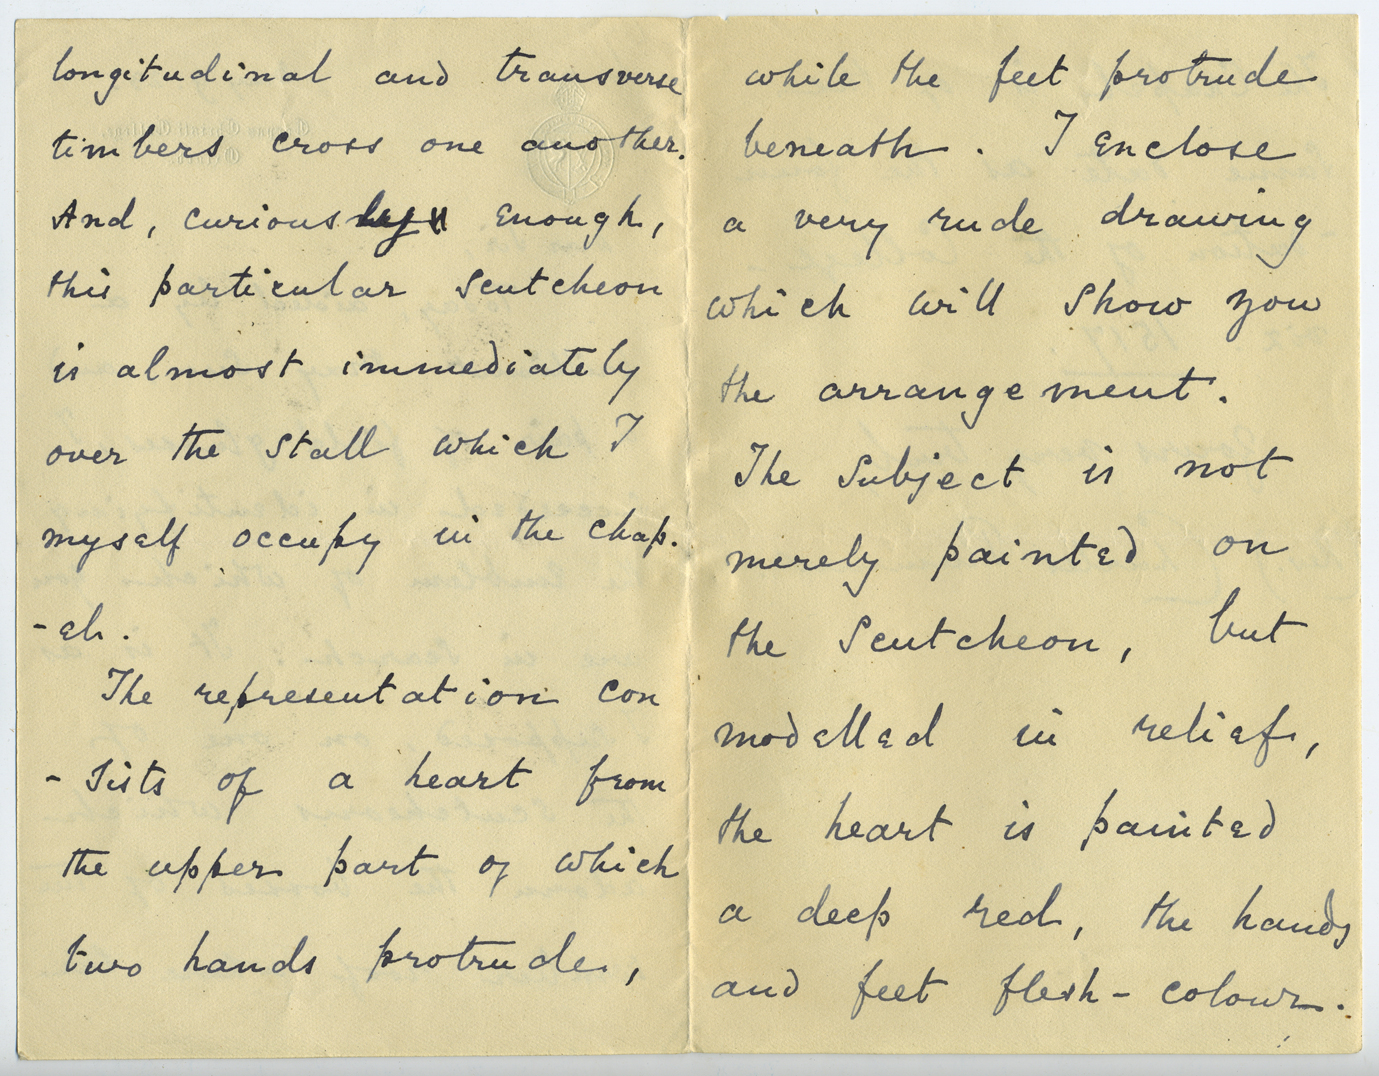 longitudinal and transverse
timbers cross one another.
And, curiously enough,
this particular scutcheon
is almost immediately
over the stall which I
myself occupy in the chap.
-el.
The representation con
- sists of a heart from
the upper part of which
two hands protrude,
while the feet protrude
beneath. I enclose
a very rude drawing
which will show you
the arrangement.
The subject is not
merely painted on
the scutcheon, but
modelled in relief,
the heart is painted
a deep red, the hands
and feet flesh - colour.